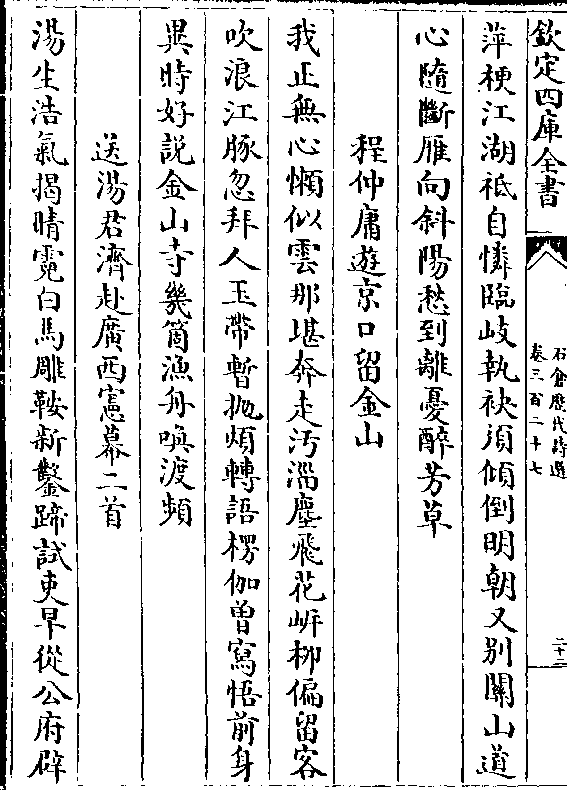 欽定四庫全書
石倉歷代詩選
卷三百二十七
二十二
萍梗江湖祗自憐臨岐執袂須傾倒明朝又别關山道
心隨斷雁向斜陽愁到離憂醉芳草
程仲庸遊京口留金山
我止無心懶似雲那堪奔走汚淄塵飛花㟁柳偏留客
吹浪江豚忽拜人玉帶暫抛煩轉語楞伽曽寫悟前身
異時好説金山寺幾箇漁舟喚渡頻
送湯君濟赴廣西憲幕二首
湯生浩氣揭晴霓白馬雕鞍新鑿蹄試吏早從公府辟